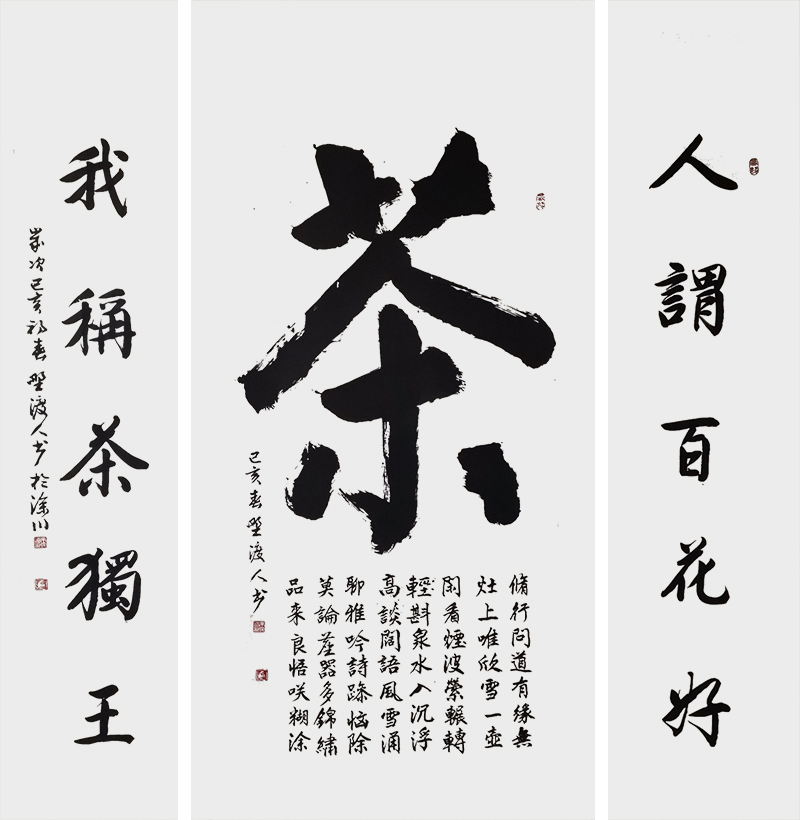 人謂百花好
茶
脩行问道有緣無
灶上唯欣雪一壺
闲看煙波縈輾轉
輕斟泉水入沉浮
高談闊語風雪涌
聊雅吟詩躁惱除
莫論茶器多錦繡
品来良悟咲糊涂
己亥春野渡人书
我稱茶獨王
歲次己亥初春野渡人书於滁州